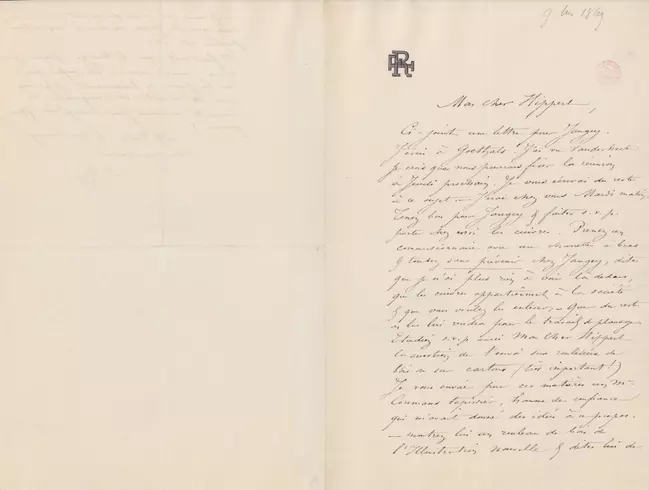 9bre 1869
Mon cher Hippert,
Ci-joint une lettre pour Jangey.
J'écris à Goethals. J'ai vu
je crois que nous pourrons fixer la réunion
à Jeudi prochain. Je vous écrirai du reste
à ce sujet — J'irai chez vous Mardi matin,
Tenez bon pour Jangey & faites s.v.p.
porter chez moi les cuivres. Prenez un
commissionnaire avec une charrette à bras
& tombez sans prévenir chez Jangey, dites
que je n'ai plus rien à voir là dedans,
que les cuivres appartiennent à la société
& que vous voulez les enlever, — Que du reste
on les lui rendra pour le travail de planage
Etudiez s.v.p. aussi Mon Cher Hippert
la question de l'envoi sur rouleaux de
bois ou sur cartons (très important!)
Je vous envoie pour ces matières un Mr
tapissier, homme de confiance
qui m'avait donné des idées à ce propos.
— montrez lui un rouleau de bois de
l'Illustration nouvelle & dites lui de